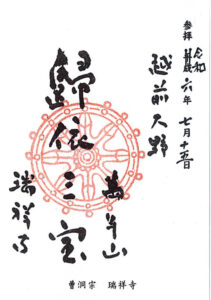 参拝 令和六年 七月十五日
越前大野
山
歸依三宝
瑞祥寺
曹洞宗 瑞祥寺